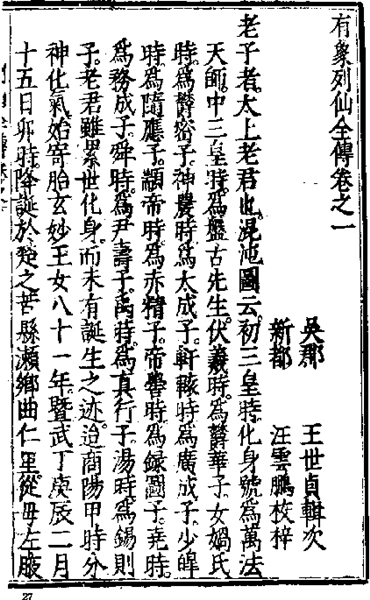 有象列仙全傳卷之一
吳郡　王世貞輯次
新都　汪雲鵬校梓
老子者。太上老君也。混沌圖云。初三皇時。化身號爲萬法
天師。中三皇時。爲盤古先生。伏羲時。爲鬱華子。女媧氏
時。爲鬱密子。神農時。爲太成子。軒轅時。爲廣成子。少皥
時。爲隨應子。顓帝時。爲赤精子。帝嚳時。爲錄圖子。堯時。
爲務成子。舜時。爲尹壽子。禹時。爲真行子。湯時。爲錫則
子。老君雖累世化身。而未有誕生之迹。迨商陽甲時。分
神化氣。始寄胎玄妙王女八十一年。暨武丁庚辰二月
十五日卯時。降誕於楚之苦縣瀨鄉曲仁里。從母左腋
27